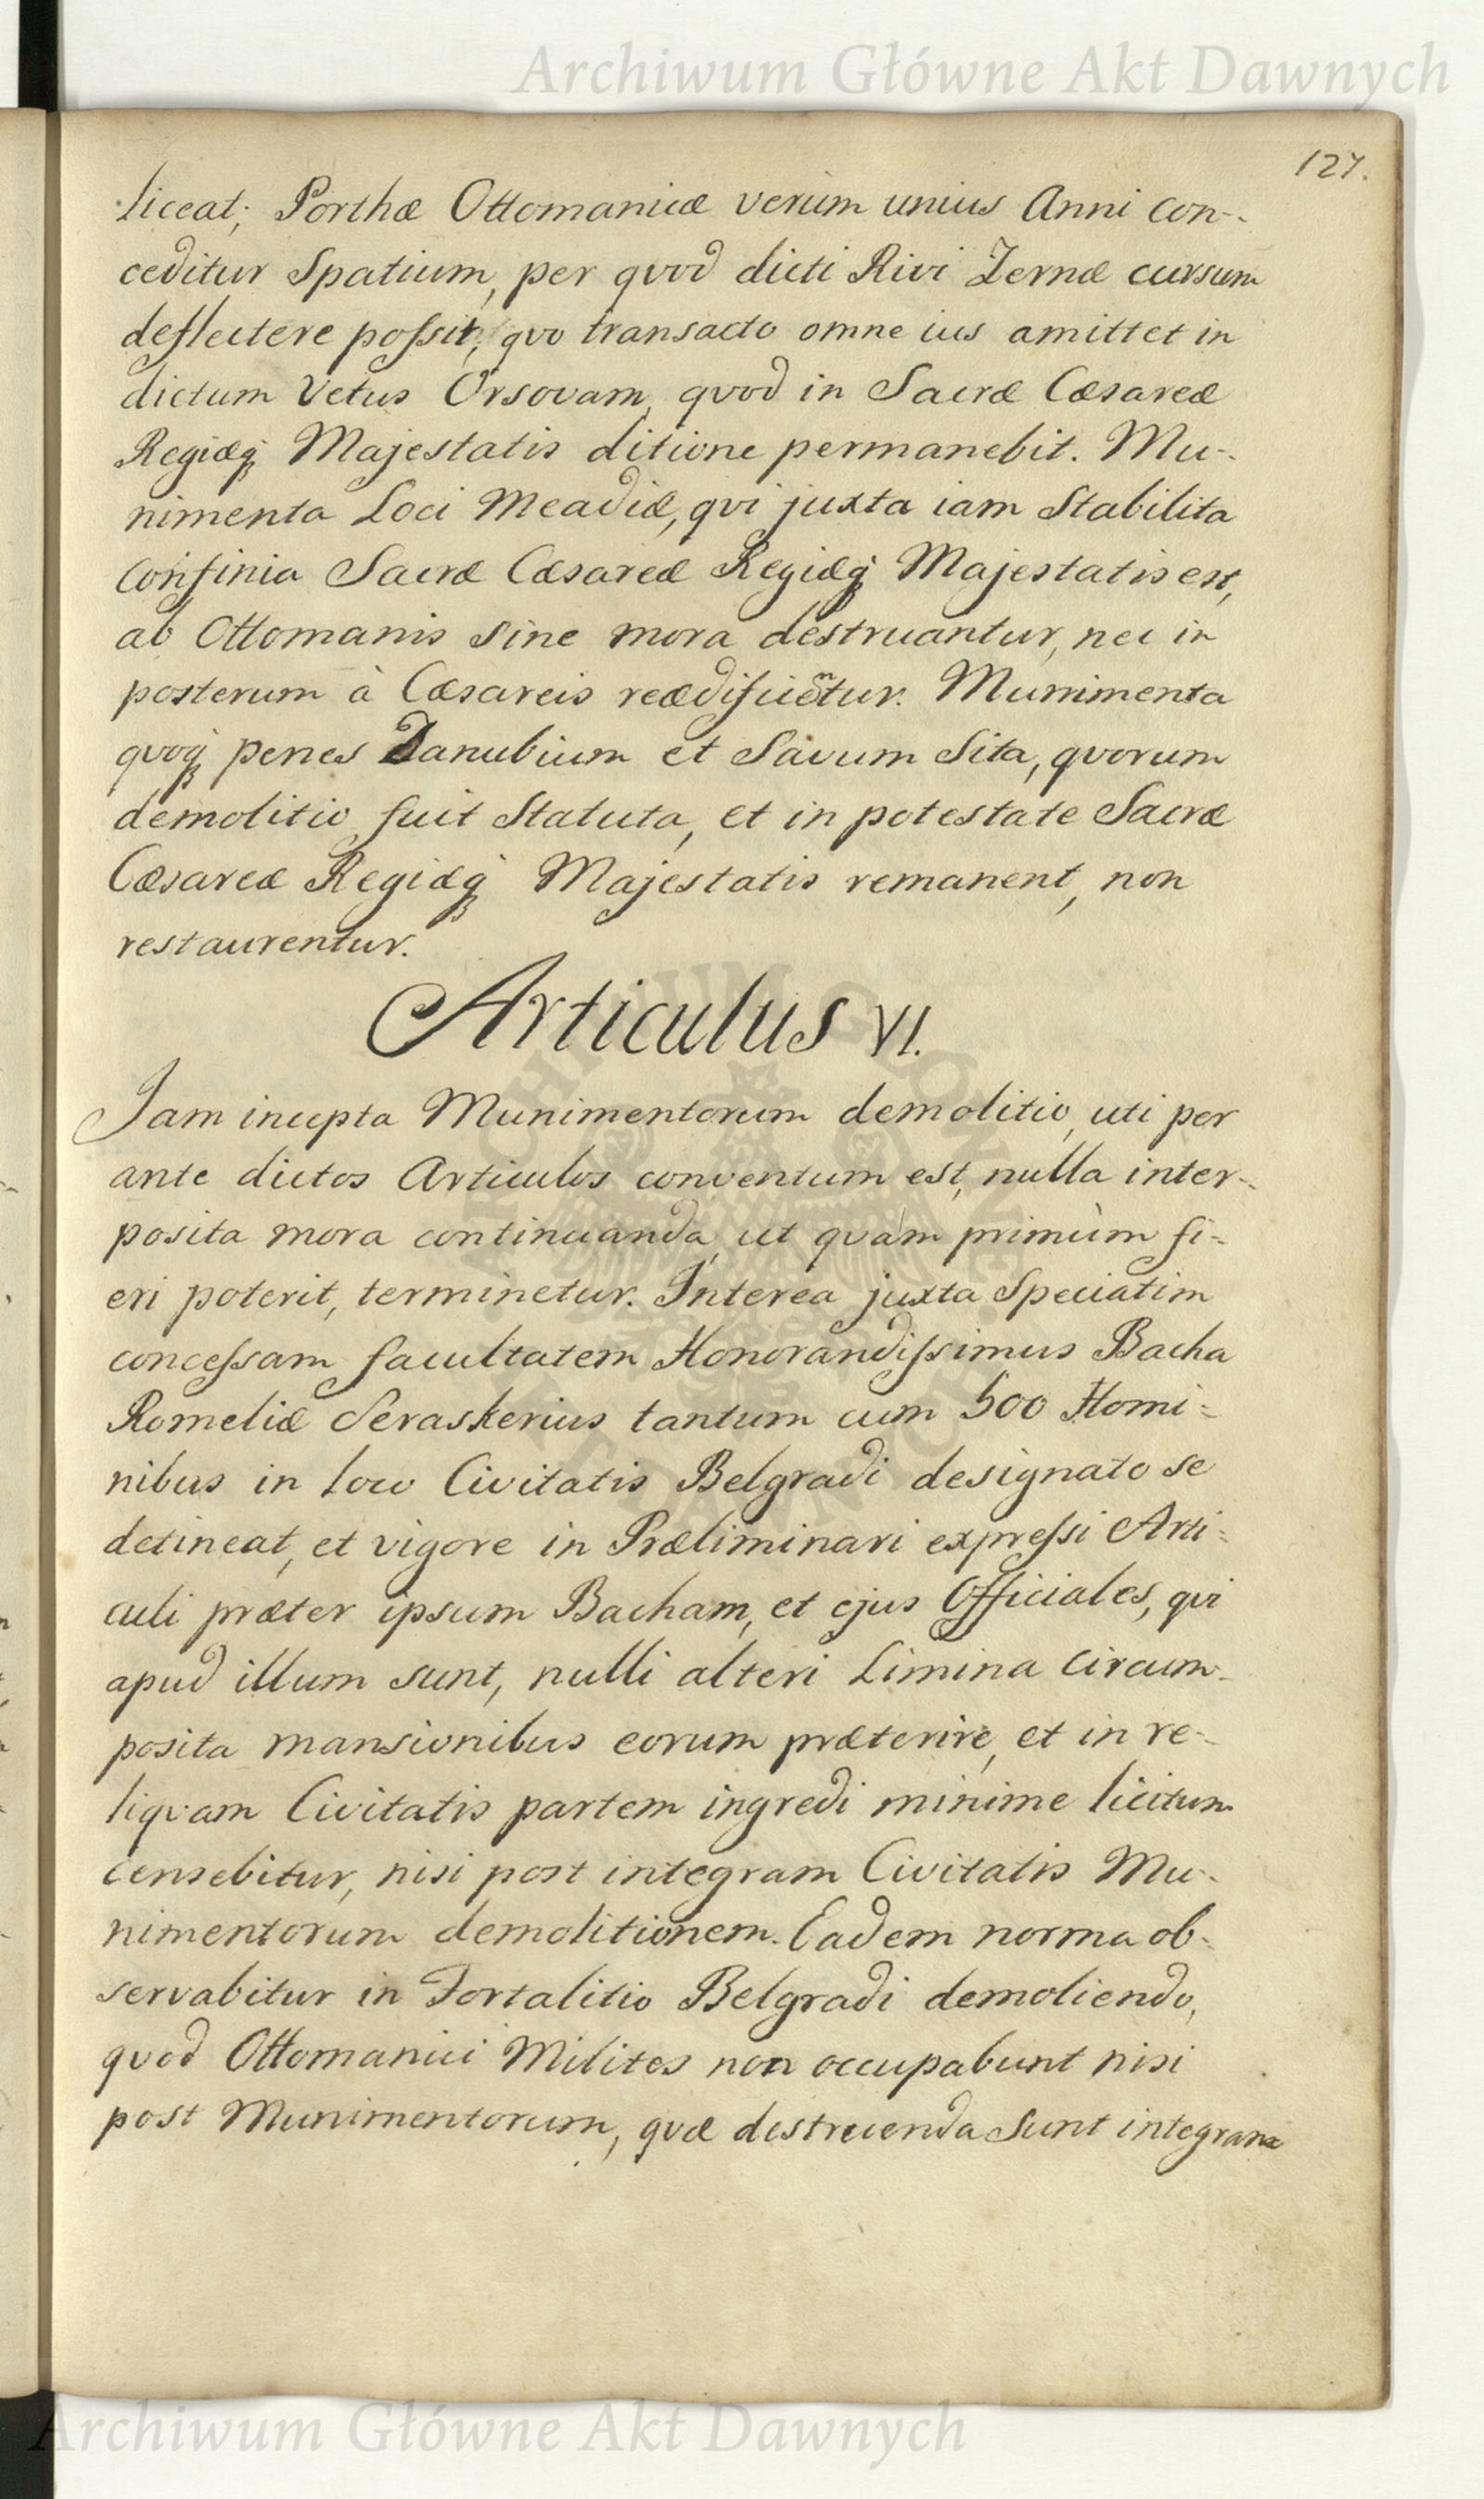 Archiwum Główne Akt Dawnych
127.
liceat; Porthæ Ottomanicæ verùm unius Anni con-
ceditur Spatium, per qvod dicti Rivi Zernæ cursum
deflectere poſsit, qvo transacto omne ius amittet in
dictum Vetus Orsovam, qvod in Sacræ Cæsareæ
Regiæq Majestatis ditione permanebit. Mu-
nimenta Loci Meadiæ, qvi juxta iam Stabilita
confinia Sacræ Cæsareæ Regiæq Majestatis est,
ab Ottomanis sine mora destruantur, nec in
posterum à Cæsareis reædificentur. Munimenta
qvoq penes Danubium et Savum Sita, qvorum
demolitio fuit Statuta, et in potestate Sacræ
Cæsareæ Regiæq Majestatis remanent, non
restaurentur.
Articulus VI.
Jam incepta Munimentorum demolitio, uti per
ante dictos Articulos conventum est, nulla inter-
posita mora continuanda, ut qvàm primùm fi-
eri poterit, terminetur. Interea juxta Speciatim
conceſsam facultatem Honorandiſsimus Bacha
Romeliæ Seraskerius tantum cum 500 Homi-
nibus in loco Civitatis Belgradi designato se
detineat, et vigore in Præliminari expreſsi Arti-
culi præter ipsum Bacham, et ejus Officiales, qvi
apud illum sunt, nulli alteri Limina circum-
posita mansionibus eorum præterire, et in re-
liqvam Civitatis partem ingredi minime licitum
censebitur, nisi post integram Civitatis Mu-
nimentorum demolitionem. Eadem norma ob-
servabitur in Fortalitio Belgradi demoliendo,
qvod Ottomanici Milites non occupabunt nisi
post Munimentorum, qvæ destruenda Sunt integram
Archiwum Główne Akt Dawnych